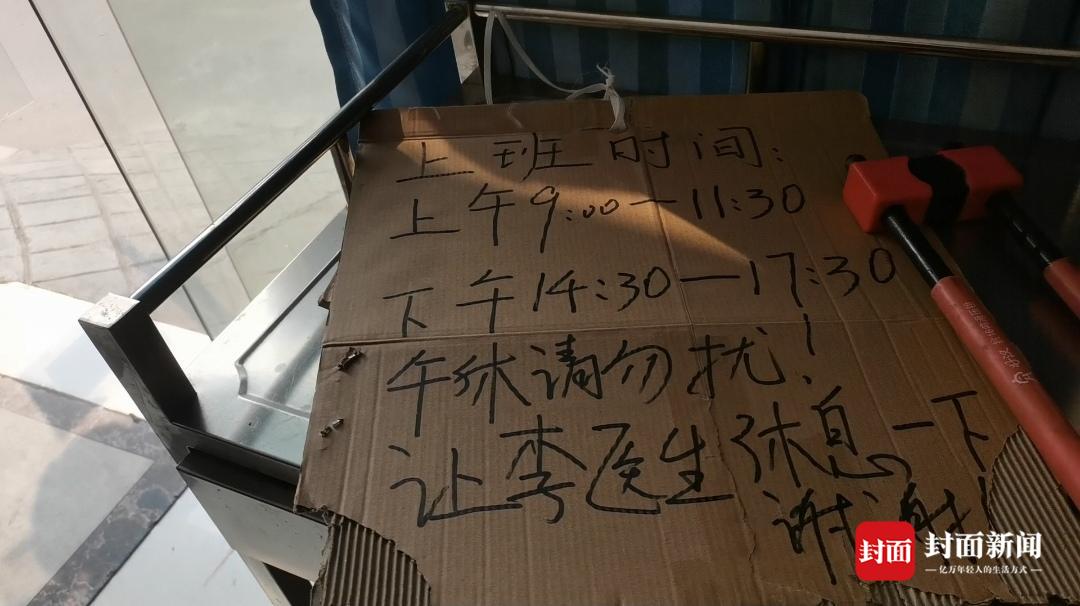 上班时间:
上午9:00—11:30
下午14:30—17:30
午休请勿扰!
让李医生休息一下
谢谢!
封面
封面新闻
—亿万年轻人的生活方式—